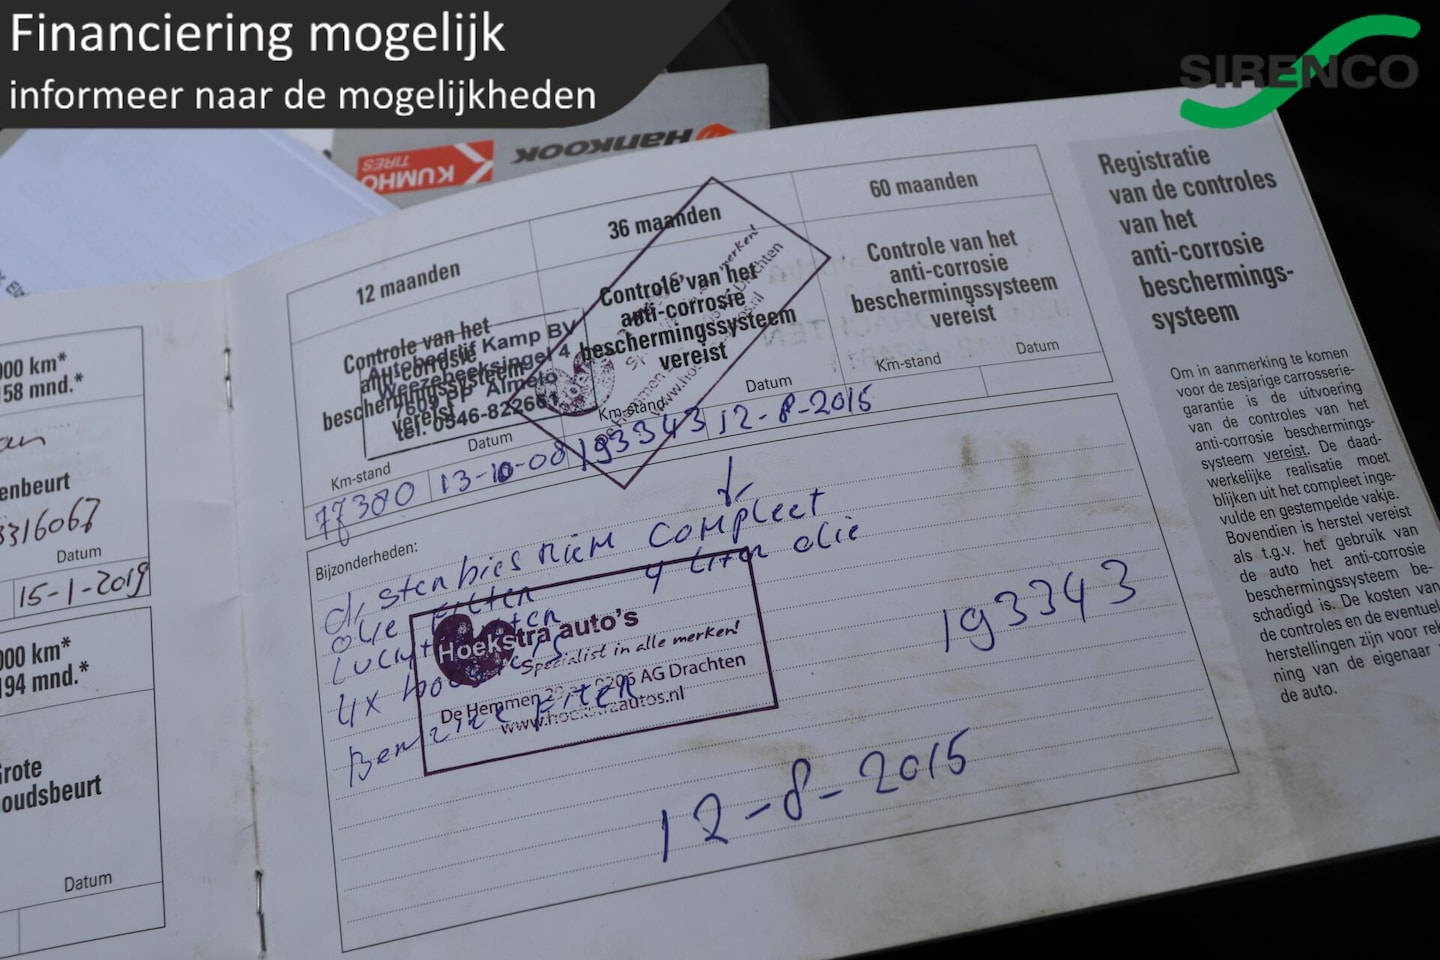 Financiering mogelijk
informeer naar de mogelijkheden
SIRENCO
KUMHO
TIRES
HANKOOK
000 km*
158 mnd.*
enbeurt
3316067
Datum
15-1-2019
000 km*
194 mnd.*
Grote
oudsbeurt
Datum
12 maanden
Controle van het
anti-corrosie
beschermingssysteem
vereist
Autobedrijf Kamp BV
Weezebeeksingel 4
Almelo
tel. 0546-82266
Km-stand
Datum
77380
13-10-08
36 maanden
Controle van het
anti-corrosie
beschermingssysteem
vereist
Km-stand
Datum
193343
12-8-2015
60 maanden
Controle van het
anti-corrosie
beschermingssysteem
vereist
Km-stand
Datum
Bijzonderheden:
compleet
4 liter olie
olie filter
4x
Hoekstra auto's
Specialist in alle merken!
De Hemmen AG Drachten
www.hoekstraautos.nl
193343
12-8-2015
Registratie
van de controles
van het
anti-corrosie
beschermings-
systeem
Om in aanmerking te komen
voor de zesjarige carrosserie-
garantie is de uitvoering
van de controles van het
anti-corrosie beschermings-
systeem vereist. De daad-
werkelijke realisatie moet
blijken uit het compleet inge-
vulde en gestempelde vakje.
Bovendien is herstel vereist
als t.g.v. het gebruik van
de auto het anti-corrosie
beschermingssysteem be-
schadigd is. De kosten van
de controles en de eventuel
herstellingen zijn voor rek
ning van de eigenaar
de auto.